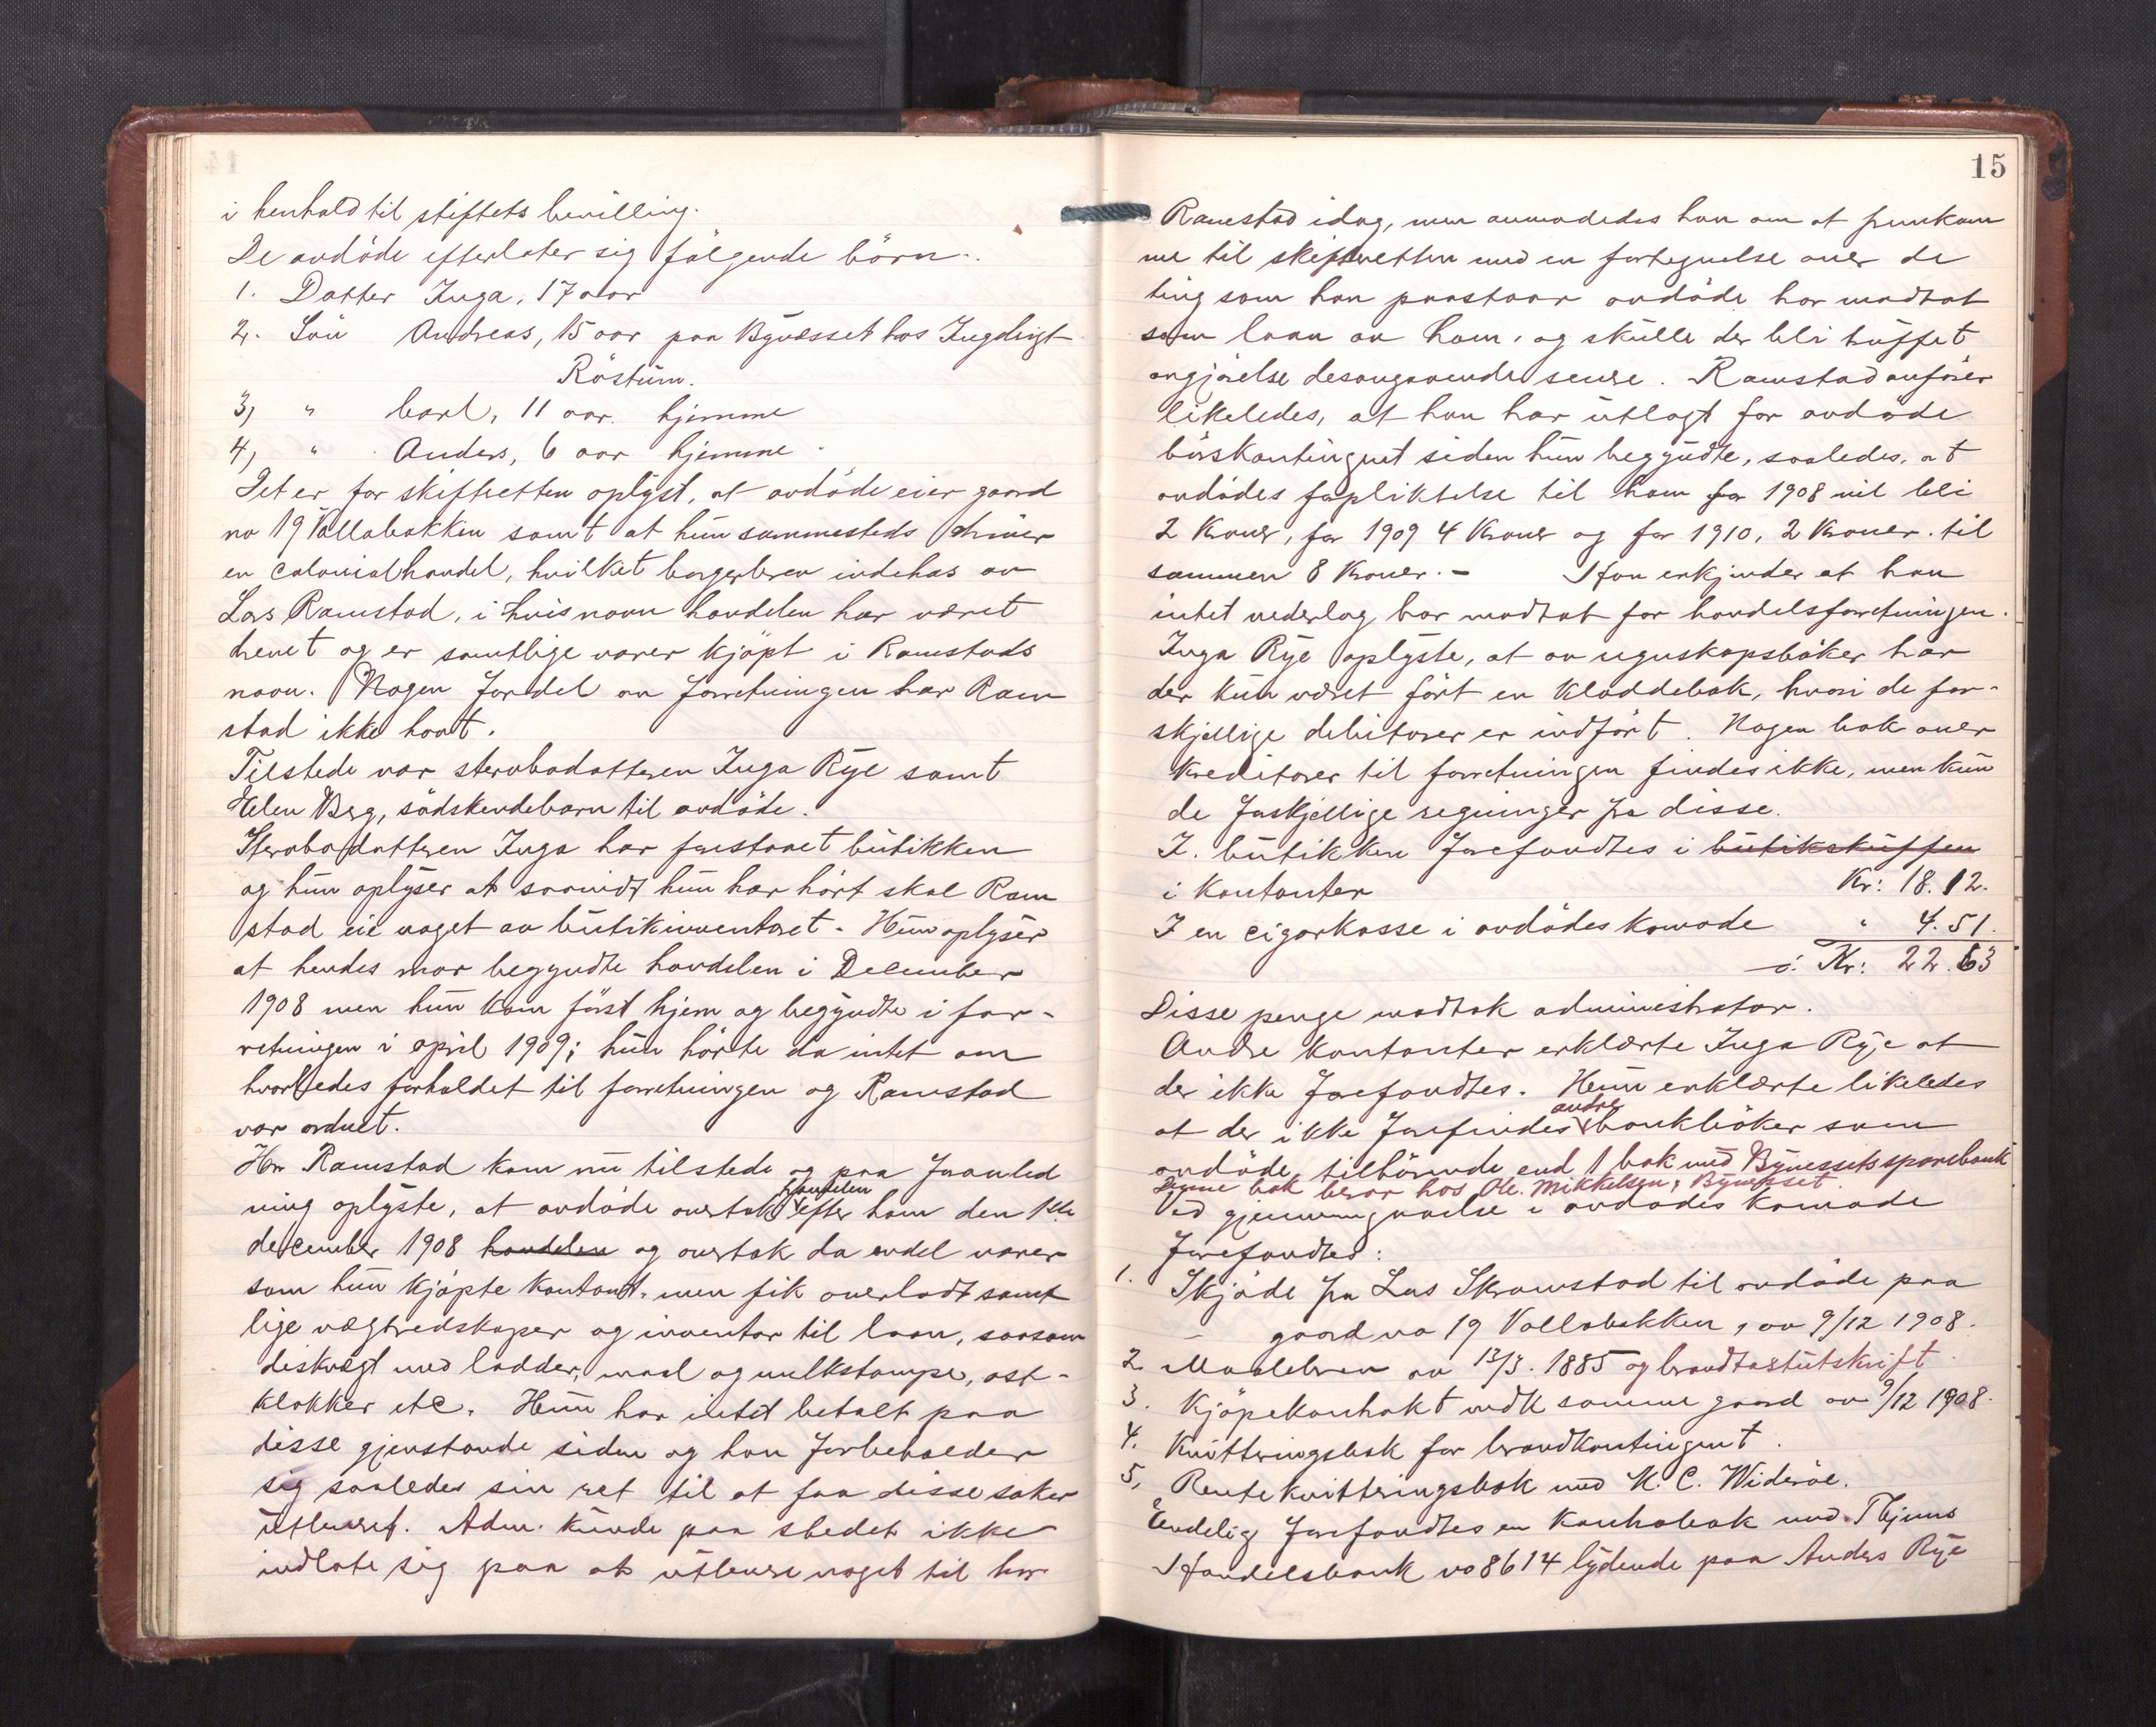 i henhold til stiftets bevilling.
De avdöde efterlater sig fölgende börn:
1. Datter Inga, 17 aar
2. Sön Andreas, 15 aar paa Bynesset hos Ingebrigt
Röstum.
3, " Carl, 11 aar. hjemme
4, " Anders, 6 aar hjemme.
Det er for skifteretten oplyst, at avdöde eier gaard
no 19 Vollabakken samt at hun sammesteds driver
en colonialhandel, hvilket borgerbrev indehas av
Lars Ramstad, i hvis navn handelen har været
drevet og er samtlige varer kjöpt i Ramstads
navn. Nogen fordel av forretningen har Ram
stad ikke havt.
Tilstede var stervbodatteren Inga Rye samt
Elen Berg, södskendebarn til avdöde.
Stervbodatteren Inga har forestaaet butikken
og hun oplyser at saavidt hun har hört skal Ram
stad eie noget av butikinventaret. Hun oplyser
at hendes mor begyndte handelen i December
1908 men hun kom först hjem og begyndte i for-
retningen i april 1909; hun hörte da intet om
hvorledes forholdet til forretningen og Ramstad
var ordnet.
Hr. Ramstad kom nu tilstede og paa foranled
ning oplyste, at avdöde overtok handelen efter ham den 1ste
december 1908 handelen og overtok da endel varer
som hun kjöpte kontant, men fik overladt samt
lige vegtredskaper og inventar til laan, saasom
diskvegt med lodder, maal og melkstampe, ost-
klokker etc. Hun har intet betalt paa
disse gjenstande siden og han forbeholder
sig saaledes sin ret til at faa disse saker
utleveret. Adm. kunde paa stedet ikke
indlate sig paa at utlevere noget til hr.
15
Ramstad idag, men anmodedes han om at fremkom
me til skifteretten med en fortegnelse over de
ting som han paastaar avdöde har modtat
som laan av ham, og skulle der bli truffet
avgjörelse desangaaende senere. Ramstad anförer
likeledes, at han har utlagt for avdöde
börskontingent siden hun begyndte, saaledes, at
avdödes forpliktelse til ham for 1908 vil bli
2 Kroner, for 1909 4 Kroner og for 1910, 2 Kroner. til
sammen 8 Kroner. - Han erkjender at han
intet vederlag har modtat for handelsforretningen.
Inga Rye oplyste, at av regnskapsböker har
der kun været fört en kladdebok, hvori de for-
skjellige debitorer er indfört. Nogen bok over
kreditorer til forretningen findes ikke, men kun
de forskjellige regninger fra disse.
I butikken forefandtes i butikskuffen
i kontanter Kr: 18.12.
I en cigarkasse i avdödes komode " 4.51.
Kr: 22.63
Disse penge modtok administrator.
Andre kontanter erklærte Inga Rye at
der ikke forefandtes. Hun erklærte likeledes
at der ikke forefindes andre bankböker som
avdöde tilhörende end 1 bok med Bynessets sparebank
Denne bok beror hos Ole Mikkelsen, Bynesset.
Ved gjennemgaaelse i avdödes komode
forefandtes:
1. Skjöde fra Lars Skramstad til avdöde paa
- gaard no 19 Vollabakken, av 9/12 1908.
2. Maalebrev av 13/3. 1885 og brandtakstutskrift
3. Kjöpekontrakt vedk samme gaard av 9/12 1908.
4. Kvitteringsbok for brandkontingent.
5, Rentekvitteringsbok med K. C. Wideröe.
Endelig forefandtes en kontrabok med Thjems
Handelsbank no 8614 lydende paa Anders Rye